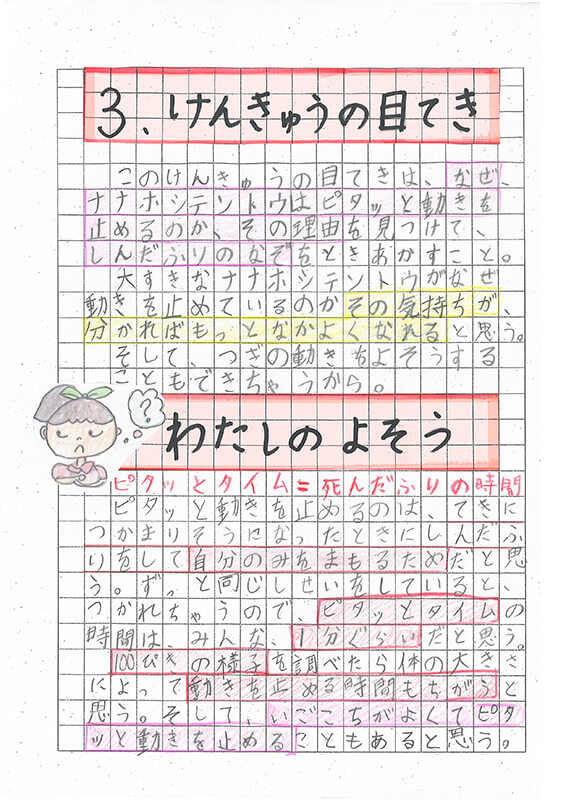 3、けんきゅうの目てき
このけんきゅうの目てきは、なぜ、
ナナホシテントウはピタッと動きを
止めるのか、その理由を見つけて、
しんだふりのなぞをときあかすこと。
大すきなナナホシテントウがなぜ
動きを止めているのかその気持ちが、
分かればもっとなかよくなれると思う。
そして、つぎの動きをよそうする
こともできちゃうから。
??
わたしのよそう
ピタッとタイム=死んだふりの時間
ピタッと動きを止めるのは、てきに
つかまりそうになったときにしんだふ
りをして自分のみをまもるためだと思
う。ずっと同じしせいをしていると、
つかれちゃうので、ピタッとタイムの
時間は、みんな、1分ぐらいだと思う。
100ぴきの様子を調べたら体の大きさ
によって動きを止める時間もちがうと
思う。そして、いごこちがよくてピタ
ッと動きを止めることもあると思う。